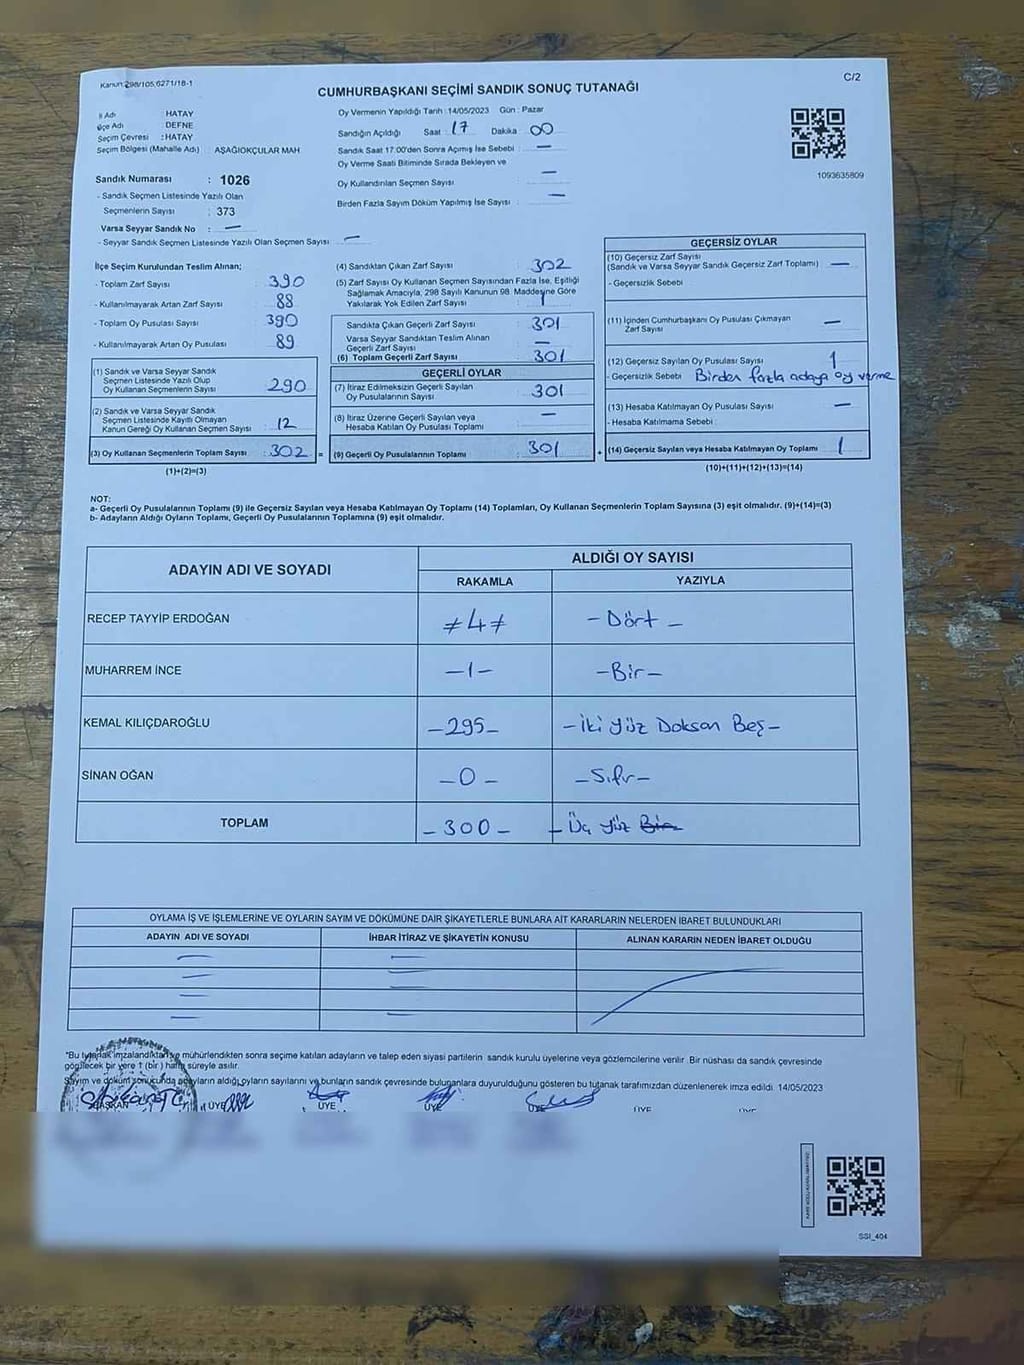 Kanun:298/105,6271/18-1
C/2
CUMHURBAŞKANI SEÇİMİ SANDIK SONUÇ TUTANAĞI
İl Adı : HATAY
İlçe Adı : DEFNE
Seçim Çevresi : HATAY
Seçim Bölgesi (Mahalle Adı) : AŞAĞIOKÇULAR MAH.
Oy Vermenin Yapıldığı Tarih : 14/05/2023 Gün : Pazar
Sandığın Açıldığı Saat : 17 Dakika : 00
Sandık Saat 17:00'den Sonra Açılmış İse Sebebi : —
Oy Verme Saati Bitiminde Sırada Bekleyen ve
Oy Kullandırılan Seçmen Sayısı : —
Birden Fazla Sayım Döküm Yapılmış İse Sayısı : —
1093635809
Sandık Numarası : 1026
- Sandık Seçmen Listesinde Yazılı Olan
Seçmenlerin Sayısı : 373
Varsa Seyyar Sandık No : —
- Seyyar Sandık Seçmen Listesinde Yazılı Olan Seçmen Sayısı : —
İlçe Seçim Kurulundan Teslim Alınan;
- Toplam Zarf Sayısı : 390
- Kullanılmayarak Artan Zarf Sayısı : 88
- Toplam Oy Pusulası Sayısı : 390
- Kullanılmayarak Artan Oy Pusulası : 89
(1) Sandık ve Varsa Seyyar Sandık
Seçmen Listesinde Yazılı Olup
Oy Kullanan Seçmenlerin Sayısı : 290
(2) Sandık ve Varsa Seyyar Sandık
Seçmen Listesinde Kayıtlı Olmayan
Kanun Gereği Oy Kullanan Seçmen Sayısı : 12
(3) Oy Kullanan Seçmenlerin Toplam Sayısı : 302
(1)+(2)=(3)
(4) Sandıktan Çıkan Zarf Sayısı : 302
(5) Zarf Sayısı Oy Kullanan Seçmen Sayısından Fazla İse, Eşitliği
Sağlamak Amacıyla, 298 Sayılı Kanunun 98. Maddesine Göre
Yakılarak Yok Edilen Zarf Sayısı : 1
Sandıkta Çıkan Geçerli Zarf Sayısı : 301
Varsa Seyyar Sandıktan Teslim Alınan
Geçerli Zarf Sayısı : —
(6) Toplam Geçerli Zarf Sayısı : 301
GEÇERLİ OYLAR
(7) İtiraz Edilmeksizin Geçerli Sayılan
Oy Pusulalarının Sayısı : 301
(8) İtiraz Üzerine Geçerli Sayılan veya
Hesaba Katılan Oy Pusulası Toplamı : —
= (9) Geçerli Oy Pusulalarının Toplamı : 301
GEÇERSİZ OYLAR
(10) Geçersiz Zarf Sayısı
(Sandık ve Varsa Seyyar Sandık Geçersiz Zarf Toplamı) : —
- Geçersizlik Sebebi :
(11) İçinden Cumhurbaşkanı Oy Pusulası Çıkmayan
Zarf Sayısı : —
(12) Geçersiz Sayılan Oy Pusulası Sayısı : 1
- Geçersizlik Sebebi : Birden fazla adaya oy verme
(13) Hesaba Katılmayan Oy Pusulası Sayısı : —
- Hesaba Katılmama Sebebi :
+ (14) Geçersiz Sayılan veya Hesaba Katılmayan Oy Toplamı : 1
(10)+(11)+(12)+(13)=(14)
NOT:
a- Geçerli Oy Pusulalarının Toplamı (9) ile Geçersiz Sayılan veya Hesaba Katılmayan Oy Toplamı (14) Toplamları, Oy Kullanan Seçmenlerin Toplam Sayısına (3) eşit olmalıdır. (9)+(14)=(3)
b- Adayların Aldığı Oyların Toplamı, Geçerli Oy Pusulalarının Toplamına (9) eşit olmalıdır.
ADAYIN ADI VE SOYADI
ALDIĞI OY SAYISI
RAKAMLA YAZIYLA
RECEP TAYYİP ERDOĞAN ≠4≠ -Dört-
MUHARREM İNCE -1- -Bir-
KEMAL KILIÇDAROĞLU -295- -İki Yüz Doksan Beş-
SİNAN OĞAN -0- -Sıfır-
TOPLAM -300- -Üç Yüz Bir
OYLAMA İŞ VE İŞLEMLERİNE VE OYLARIN SAYIM VE DÖKÜMÜNE DAİR ŞİKAYETLERLE BUNLARA AİT KARARLARIN NELERDEN İBARET BULUNDUKLARI
ADAYIN ADI VE SOYADI İHBAR İTİRAZ VE ŞİKAYETİN KONUSU ALINAN KARARIN NEDEN İBARET OLDUĞU
*Bu tutanak imzalandıktan ve mühürlendikten sonra seçime katılan adayların ve talep eden siyasi partilerin sandık kurulu üyelerine veya gözlemcilerine verilir. Bir nüshası da sandık çevresinde
görülecek bir yere 1 (bir) hafta süreyle asılır.
Sayım ve döküm sonucunda adayların aldığı oyların sayılarını ve bunların sandık çevresinde bulunanlara duyurulduğunu gösteren bu tutanak tarafımızdan düzenlenerek imza edildi. 14/05/2023
BAŞKAN ÜYE ÜYE ÜYE ÜYE ÜYE ÜYE
SSI_404